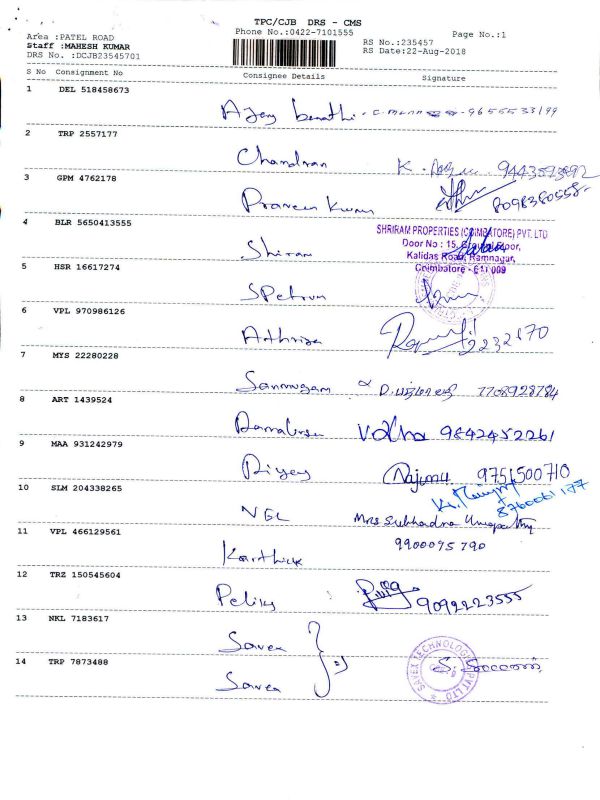 TPC/CJB DRS - CMS
Phone No.:0422-7101555
Page No.:1
Area :PATEL ROAD
Staff :MAHESH KUMAR
DRS No. :DCJB23545701
RS No.:235457
RS Date:22-Aug-2018
S No Consignment No Consignee Details Signature
1 DEL 518458673
2 TRP 2557177
Chandran 9443573692
3 GPM 4762178
Praveen Kumar 8098380558
4 BLR 5650413555
SHRIRAM PROPERTIES (COIMBATORE) PVT. LTD
Door No : 15,
Kalidas Road, Ramnagar,
Coimbatore - 641 009
Shriram
5 HSR 16617274
6 VPL 970986126
7 MYS 22280228
Sanmugam 7708928784
8 ART 1439524
9842452261
9 MAA 931242979
9751500710
10 SLM 204338265
8760061177
NGL Mrs Subhadra
11 VPL 466129561
9900095790
Karthick
12 TRZ 150545604
9092223555
13 NKL 7183617
Savex
14 TRP 7873488
SAVEX TECHNOLOGIES PVT LTD
Savex